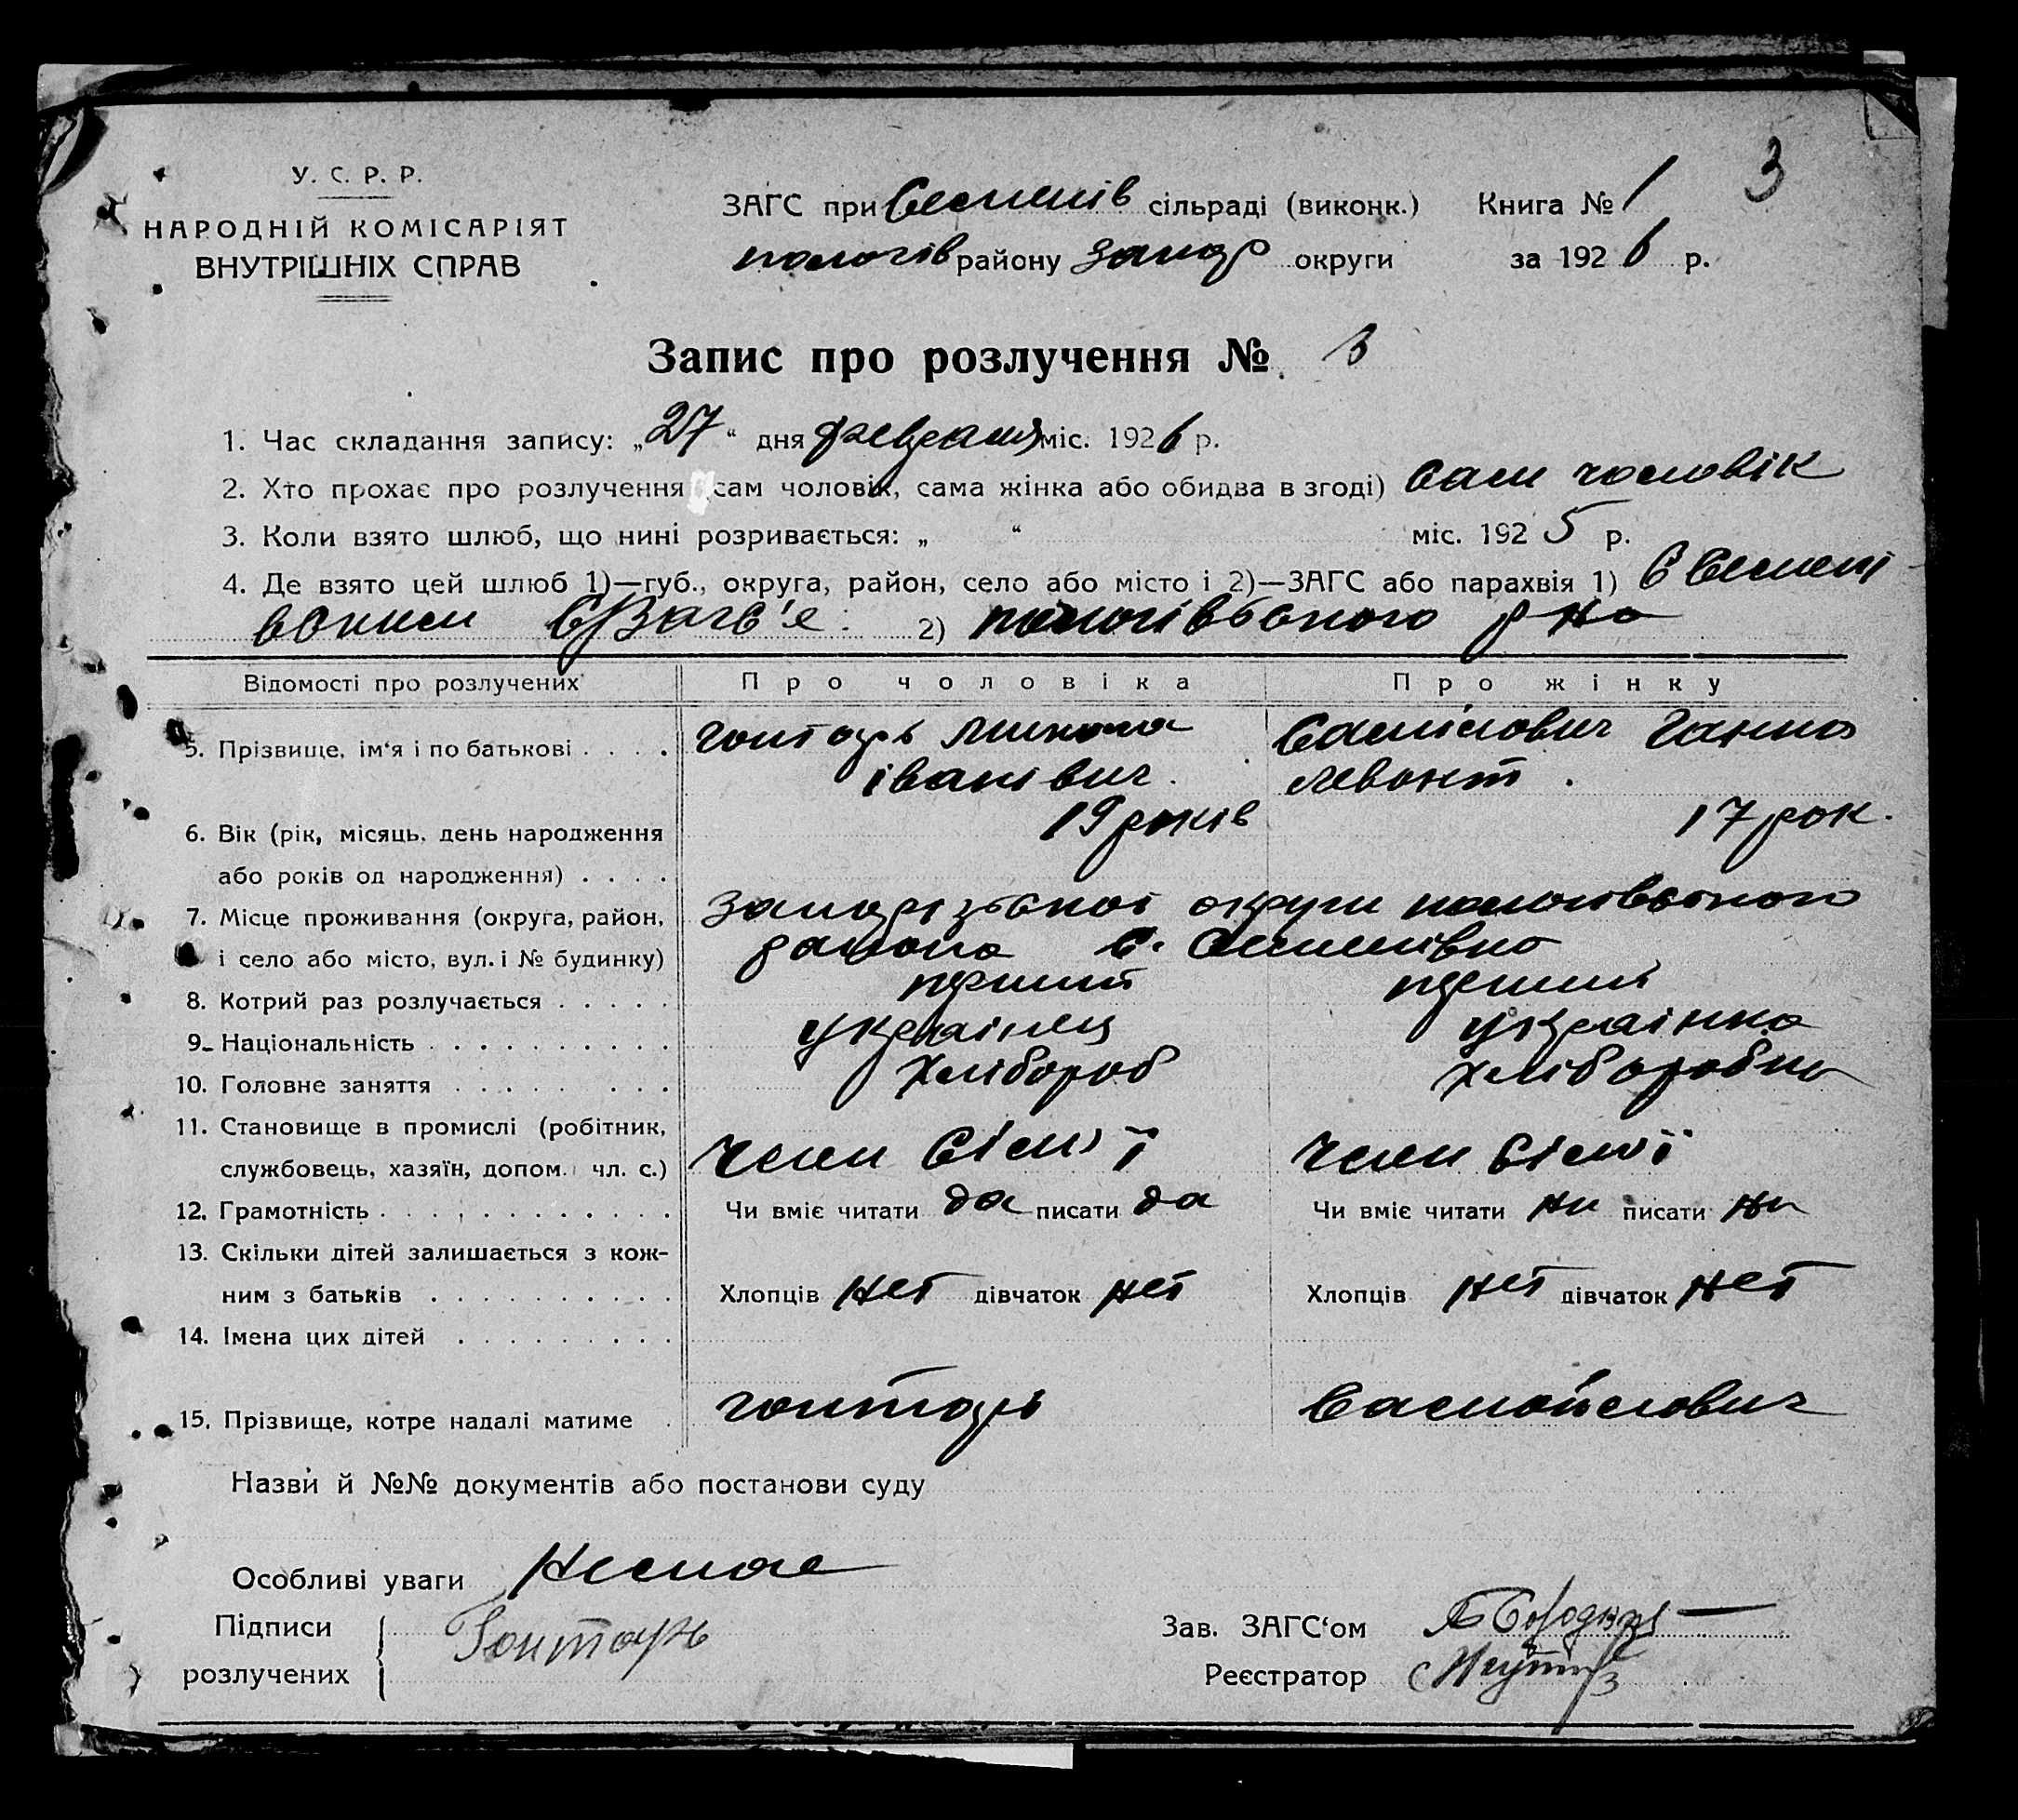 3
У. С. Р. Р.
НАРОДНІЙ КОМІСАРІЯТ
ВНУТРІШНІХ СПРАВ
ЗАГС при Семенів сільраді (виконк.) Книга № 1
пологів району Запор округи за 1926 р.
Запис про розлучення № 3
1. Час складання запису: „27“ дня февраля міс. 1926 р.
2. Хто прохає про розлучення (сам чоловік, сама жінка або обидва в згоді) Сам чоловік
3. Коли взято шлюб, що нині розривається: „ “ міс. 1925 р.
4. Де взято цей шлюб 1)—губ., округа, район, село або місто і 2)—ЗАГС або парахвія 1) в Семені
2) пологівського р-на
Відомості про розлучених Про чоловіка Про жінку
5. Прізвище, ім‘я і по батькові . . . . Гонтарь Микола Ганна
іванівич левонт.
6. Вік (рік, місяць, день народження 19 років 17 рок.
або років од народження) . . . .
7. Місце проживання (округа, район, Запорізької округи пологівського
і село або місто, вул. і № будинку) района с. Семенівка
8. Котрий раз розлучається . . . . . перший перший
9. Національність . . . . . . . . . . українец українка
10. Головне заняття . . . . . . . . хлібороб хліборобка
11. Становище в промислі (робітник,
службовець, хазяїн, допом. чл. с.) Член сім'ї Член сім'ї
12. Грамотність . . . . . . . . . . . . Чи вміє читати да писати да Чи вміє читати ни писати ни
13. Скільки дітей залишається з кож-
ним з батьків . . . . . . . . . . Хлопців нет дівчаток нет Хлопців нет дівчаток нет
14. Імена цих дітей . . . . . . . . .
15. Прізвище, котре надалі матиме . Гонтарь Самойлович
Назви й №№ документів або постанови суду
Особливі уваги Немае
Підписи
розлучених
Гонтарь
Зав. ЗАГС‘ом
Реєстратор